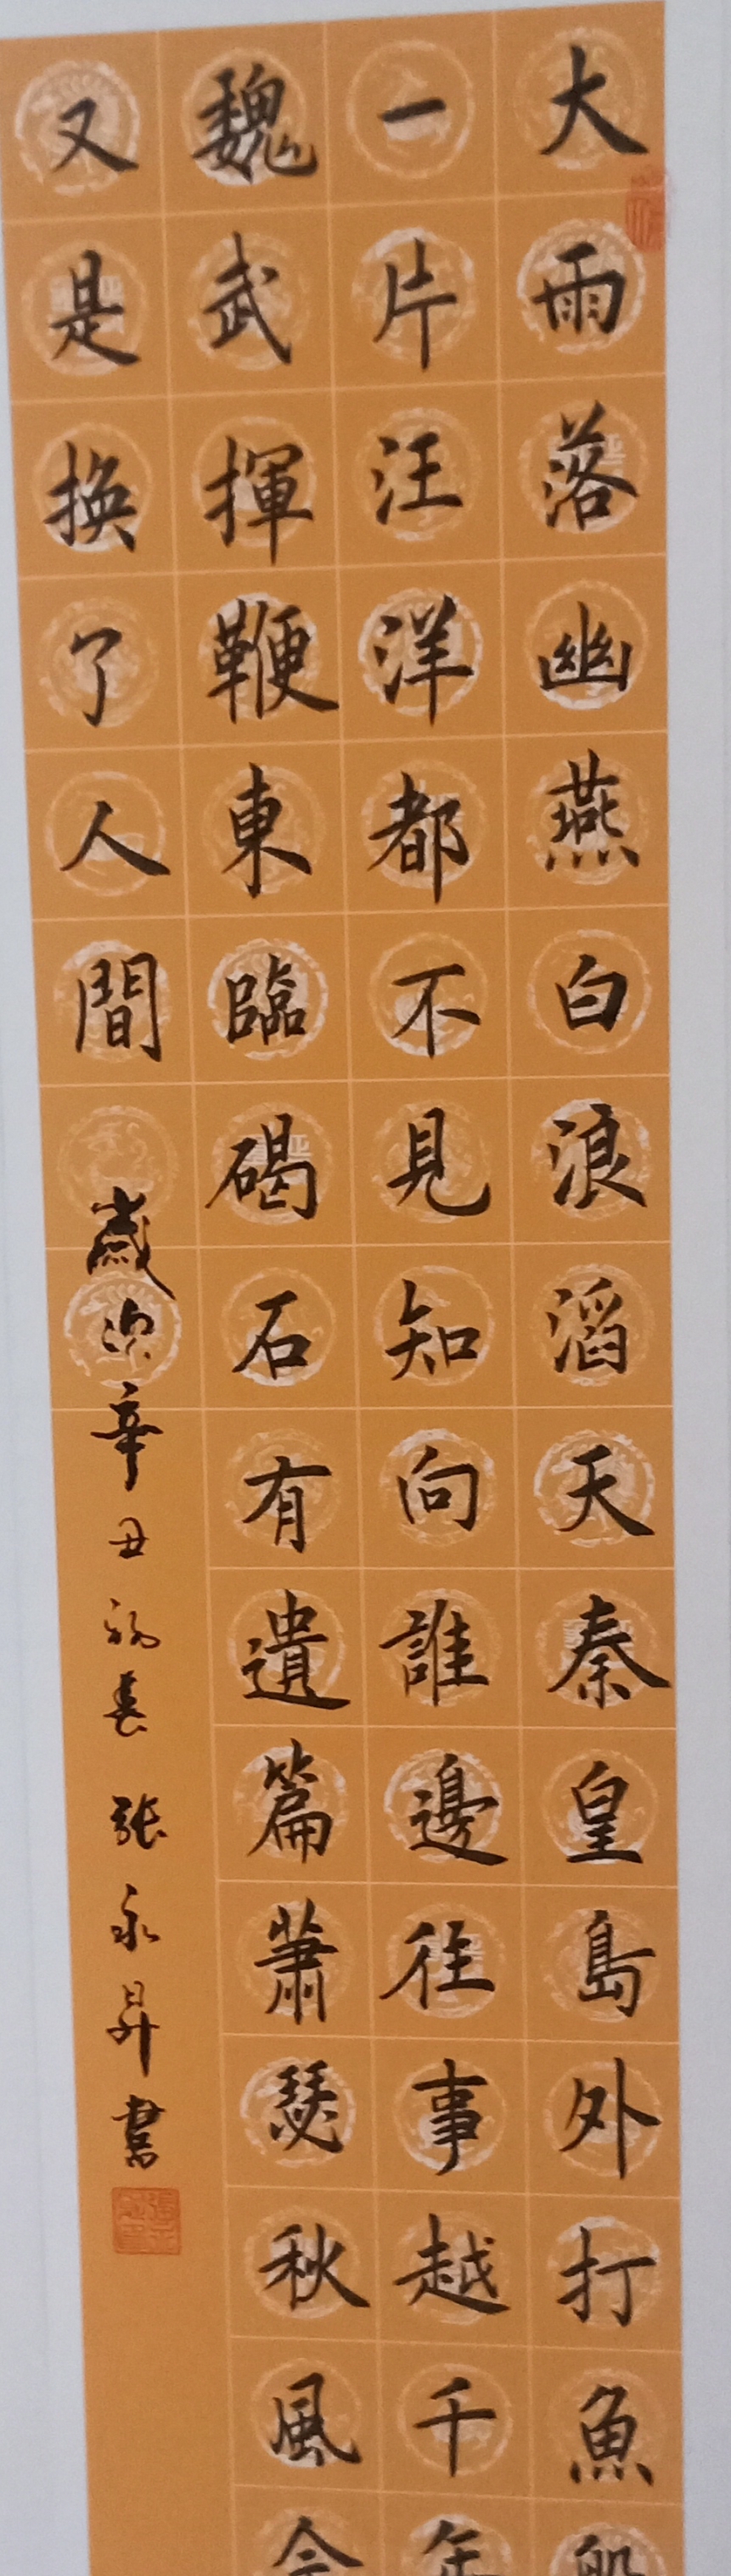 大雨落幽燕白浪滔天秦皇島外打魚船
一片汪洋都不見知向誰邊往事越千年
魏武揮鞭東臨碣石有遺篇蕭瑟秋風今
又是換了人間
歲次辛丑初春 張永昇書